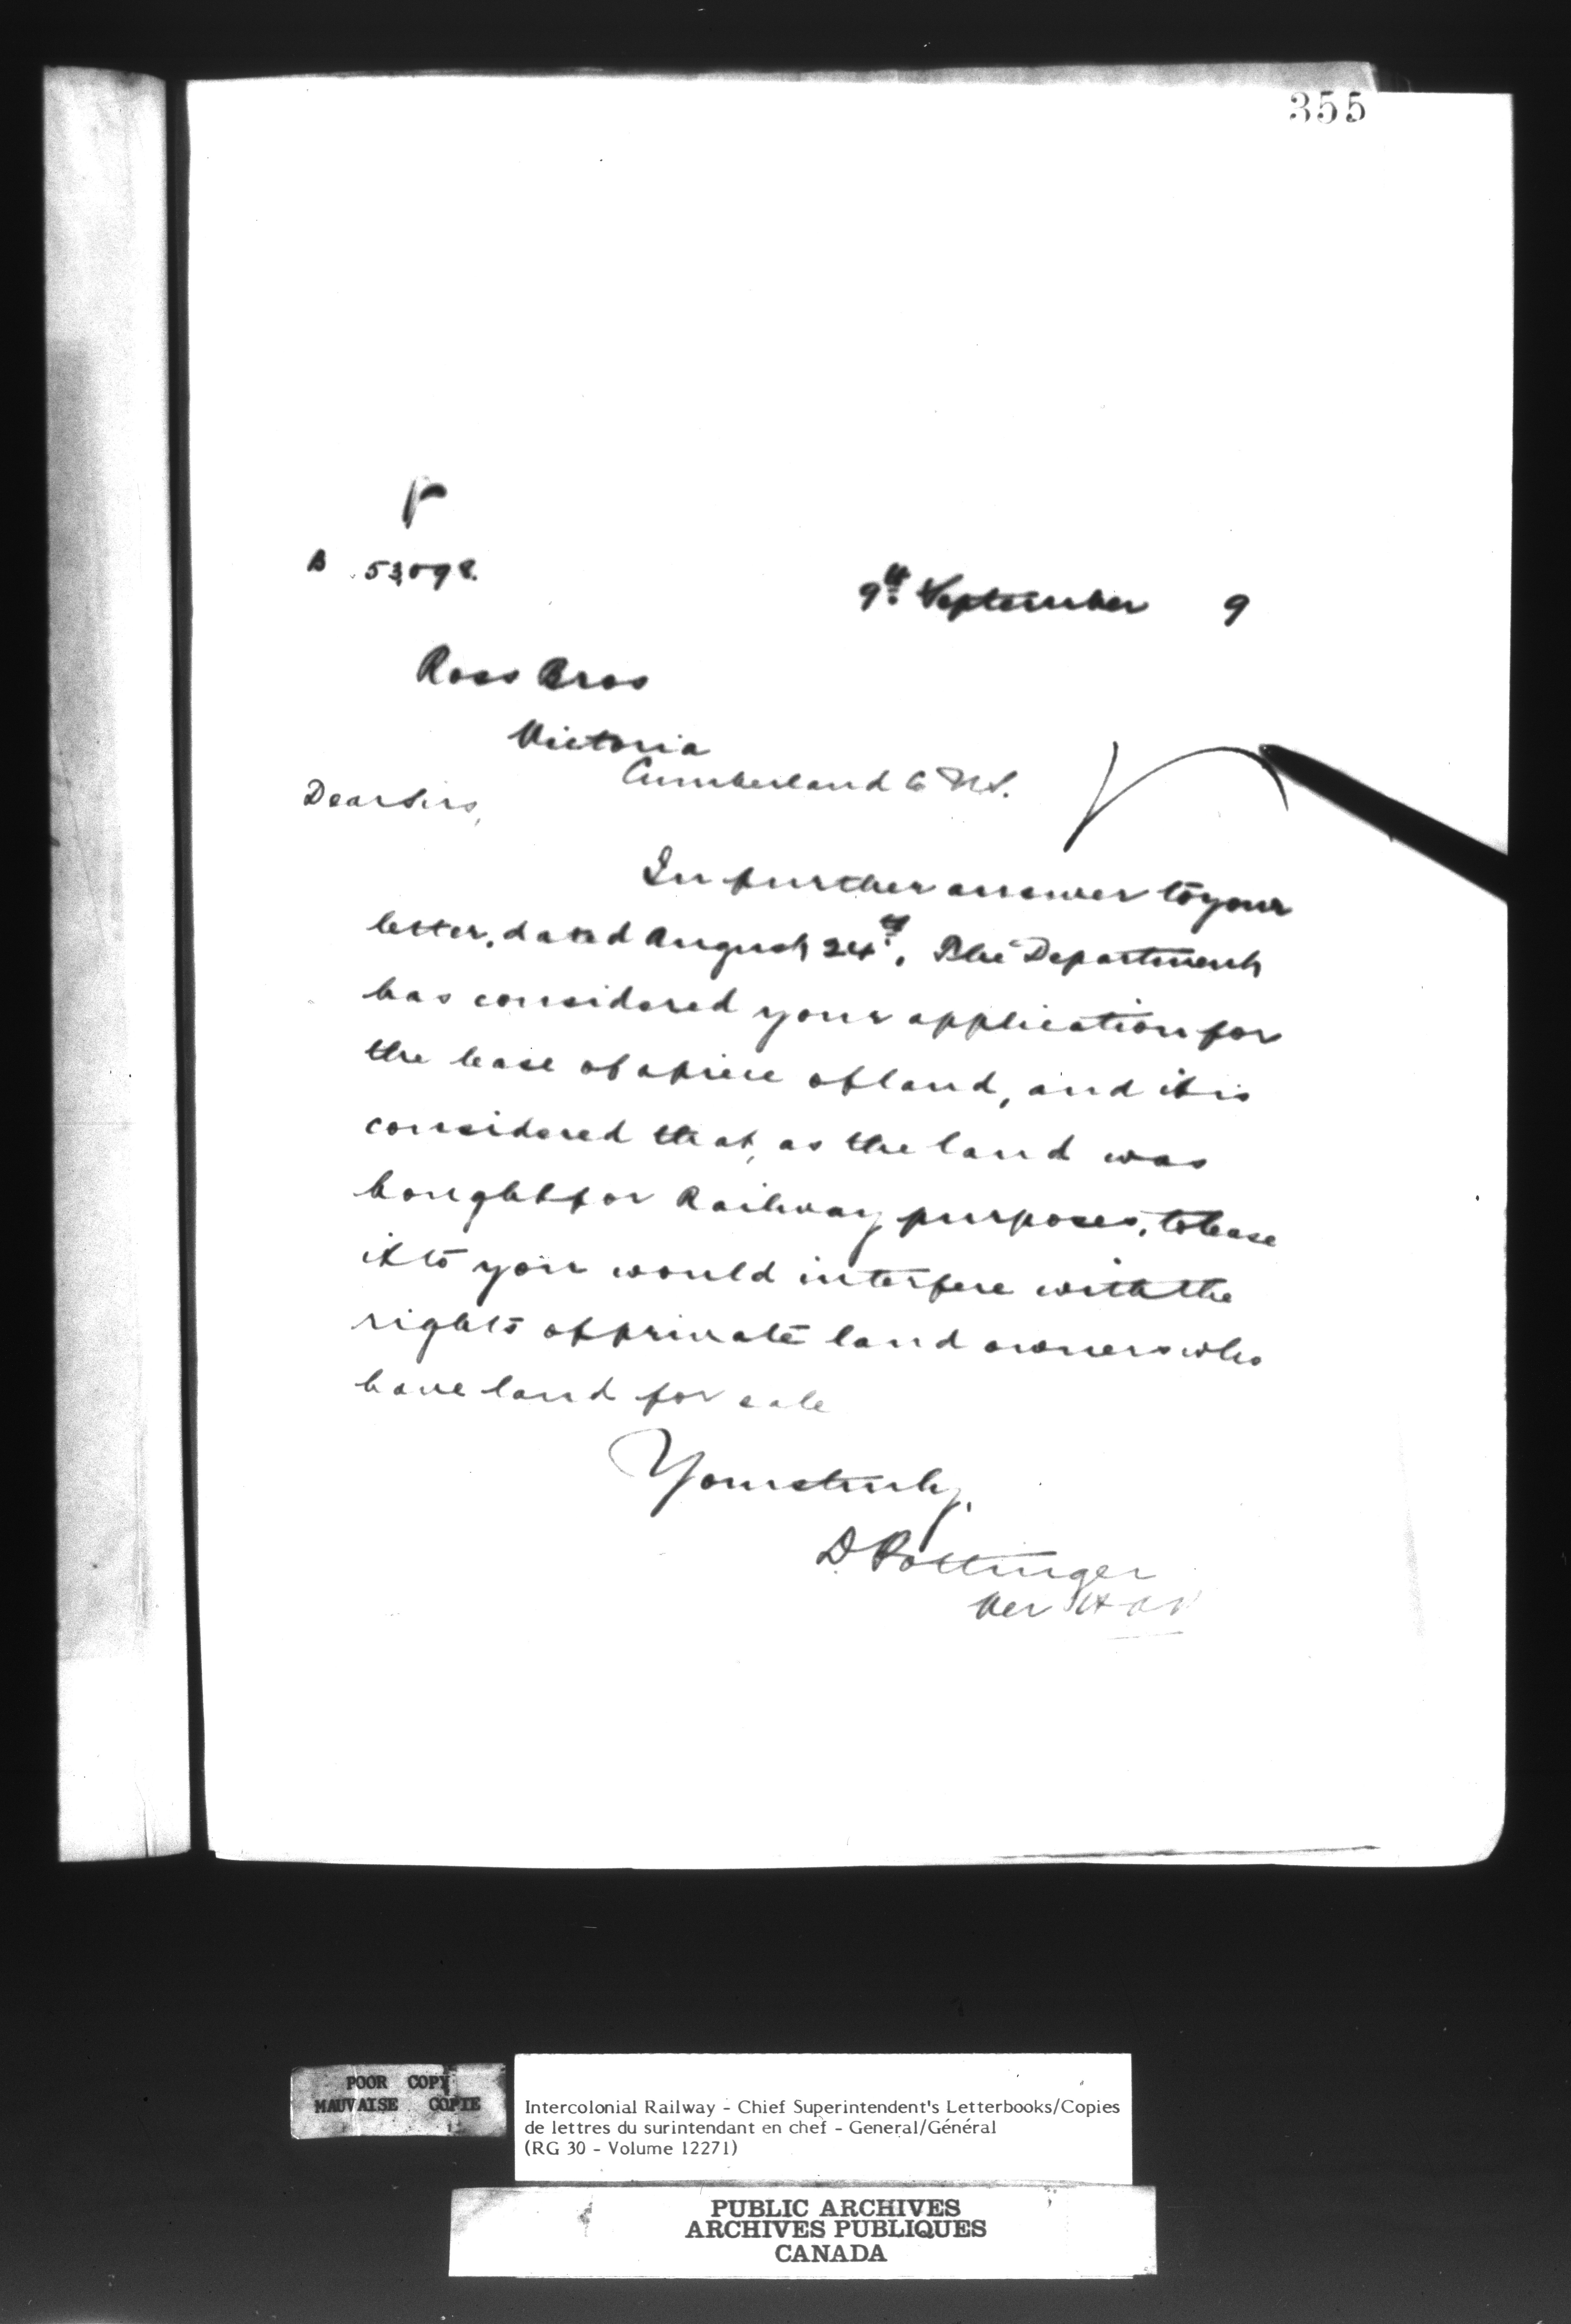 355
B 53098.
9th September 9
Ross Bros
Victoria
Cumberland Co N.S.
Dear Sirs,
In further answer to your
letter, dated August 24th, The Department
has considered your application for
the lease of a piece of land, and it is
considered that, as the land was
bought for Railway purposes, to lease
it to you would interfere with the
rights of private land owners who
have land for sale
Yours truly,
D. Pottinger
Per
POOR COPY
MAUVAISE COPIE
Intercolonial Railway - Chief Superintendent's Letterbooks/Copies
de lettres du surintendant en chef - General/Général
(RG 30 - Volume 12271)
PUBLIC ARCHIVES
ARCHIVES PUBLIQUES
CANADA